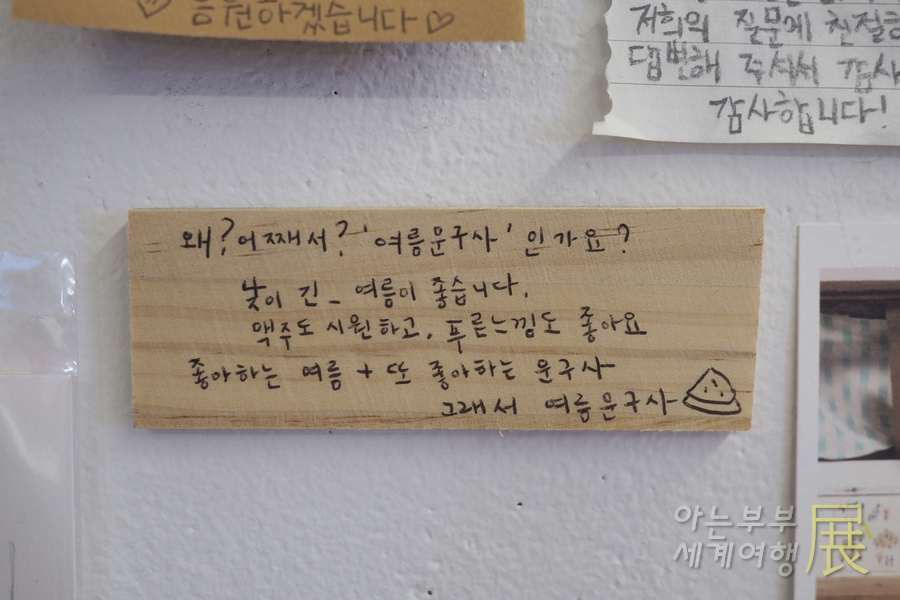 응원하겠습니다♡
저희의 질문에 친절히
답변해 주셔서 감사
감사합니다!
왜? 어째서? '여름문구사' 인가요?
낮이 긴_ 여름이 좋습니다.
맥주도 시원하고, 푸른느낌도 좋아요
좋아하는 여름 + 또 좋아하는 문구사
그래서 여름문구사
아는부부
세계여행 展